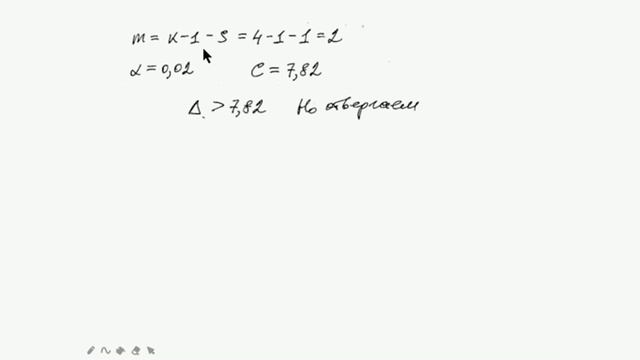 m = k - 1 - S = 4 - 1 - 1 = 2
α = 0,02 C = 7,82
Δ > 7,82 H₀ отвергаем